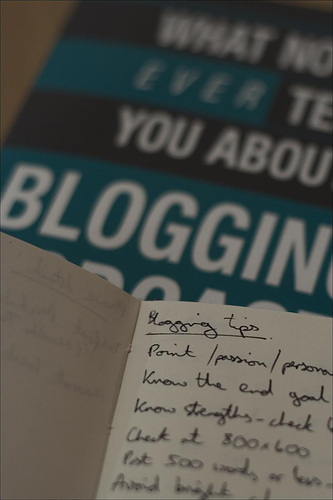 WHAT NO
EVER TE
YOU ABOU
BLOGGING
Blogging tips
Point / passion / persona
Know the end goal
Know strengths - check
Check at 800x600
Post 500 words or less
Avoid